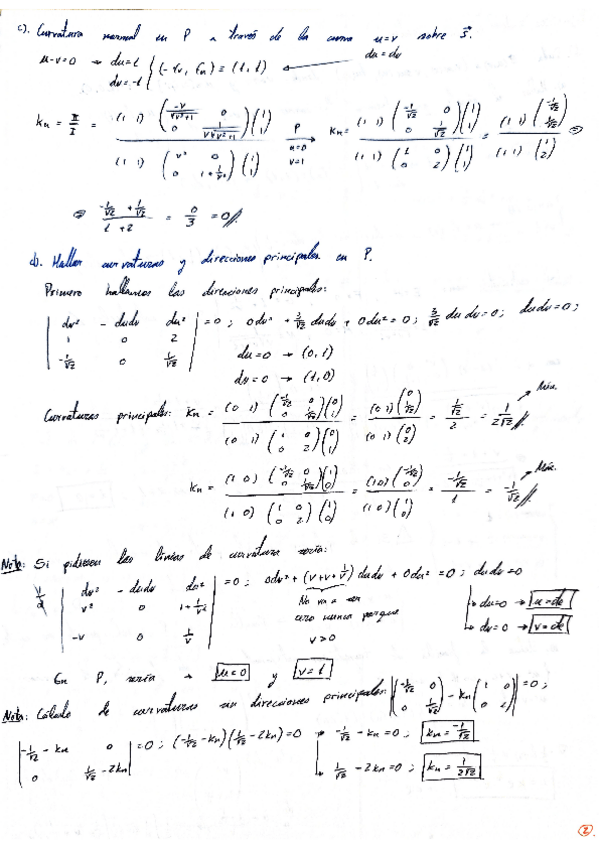 c). Curvatura normal en P a través de la curva u=v sobre S.
u-v=0 → du=1
dv=-1 } (-fv, fu) = (1, 1) ← du=dv
kn = II/I = (1 1) (-v/√v²+1 0 0 1/v√v²+1) (1 1) / (1 1) (v² 0 0 1+1/v²) (1 1) P → u=0 v=1 kn = (1 1) (-1/√2 0 0 1/√2) (1 1) / (1 1) (1 0 0 2) (1 1) = (1 1) (-1/√2 1/√2) / (1 1) (1 2) ⇒
⇒ (-1/√2 + 1/√2) / (1+2) = 0/3 = 0//.
d). Hallar curvaturas y direcciones principales en P.
Primero hallamos las direcciones principales:
| dv² -dudv du² | 1 0 2 | -1/√2 0 1/√2 | = 0 ; 0dv² + 3/√2 dudv + 0du² = 0 ; 3/√2 du dv = 0 ; dudv = 0 ;
du=0 → (0, 1)
dv=0 → (1, 0)
Curvaturas principales: kn = (0 1) (-1/√2 0 0 1/√2) (0 1) / (0 1) (1 0 0 2) (0 1) = (0 1) (0 1/√2) / (0 1) (0 2) = (1/√2) / 2 = 1/2√2 // Máx.
kn = (1 0) (-1/√2 0 0 1/√2) (1 0) / (1 0) (1 0 0 2) (1 0) = (1 0) (-1/√2 0) / (1 0) (1 0) = (-1/√2) / 1 = -1/√2 // Mín.
Nota: Si pidiesen las líneas de curvatura sería:
| dv² -dudv du² | v² 0 1+1/v² | -v 0 1/v | = 0 ; 0dv² + (v+v+1/v) dudv + 0du² = 0 ; dudv = 0
No va a ser
cero nunca porque
v>0
du=0 → u=cte
dv=0 → v=cte
En P, sería → u=0 y v=1
Nota: Cálculo de curvaturas sin direcciones principales: | (-1/√2 0 0 1/√2) - kn (1 0 0 2) | = 0 ;
| -1/√2 - kn 0 0 1/√2 - 2kn | = 0 ; (-1/√2 - kn)(1/√2 - 2kn) = 0 → -1/√2 - kn = 0 ; kn = -1/√2
1/√2 - 2kn = 0 ; kn = 1/2√2
2.